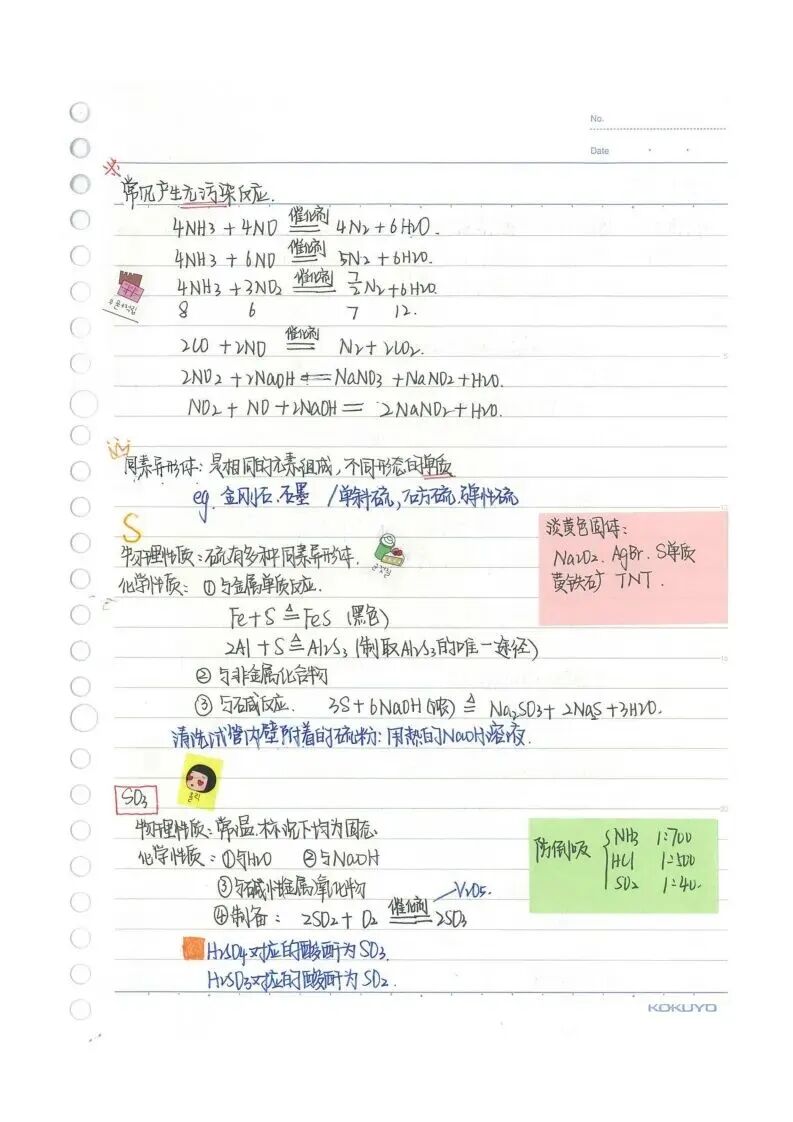 No.
Date
常见产生无污染反应.
4NH3 + 4NO 催化剂 4N2 + 6H2O.
4NH3 + 6NO 催化剂 5N2 + 6H2O.
4NH3 + 3NO2 催化剂 7/2 N2 + 6H2O.
8 6 7 12.
2CO + 2NO 催化剂 N2 + 2CO2.
2NO2 + 2NaOH == NaNO3 + NaNO2 + H2O.
NO2 + NO + 2NaOH == 2NaNO2 + H2O.
同素异形体: 是相同的元素组成, 不同形态的单质
eg. 金刚石.石墨 / 单斜硫, 斜方硫.弹性硫
S
物理性质: 硫有多种同素异形体.
化学性质: ① 与金属单质反应.
Fe + S ≜ FeS (黑色)
2Al + S ≜ Al2S3 (制取Al2S3的唯一途径)
② 与非金属化合物
③ 与碱反应. 3S + 6NaOH (浓) ≜ Na2SO3 + 2NaS + 3H2O.
清洗试管内壁附着的硫粉: 用热的NaOH溶液.
淡黄色固体:
Na2O2. AgBr. S单质
黄铁矿 TNT.
SO3
物理性质: 常温.标况下均为固态.
化学性质: ①与H2O ②与NaOH
③与碱性金属氧化物
④制备: 2SO2 + O2 催化剂 2SO3 V2O5.
H2SO4对应的酸酐为SO3.
H2SO3对应的酸酐为SO2.
防倒吸 { NH3 1:700
HCl 1:500
SO2 1:40.
KOKUYO